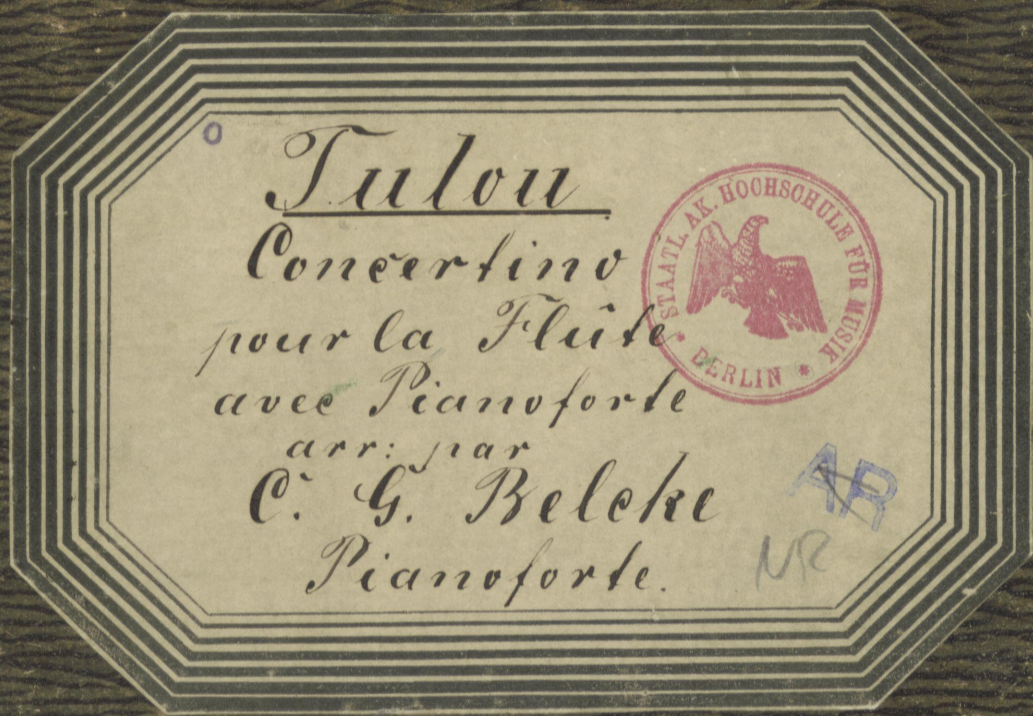 Tulou
Concertino
pour la Flûte
avec Pianoforte
arr: par
C. G. Belcke
Pianoforte.
STAATL. AK. HOCHSCHULE FÜR MUSIK
* BERLIN *